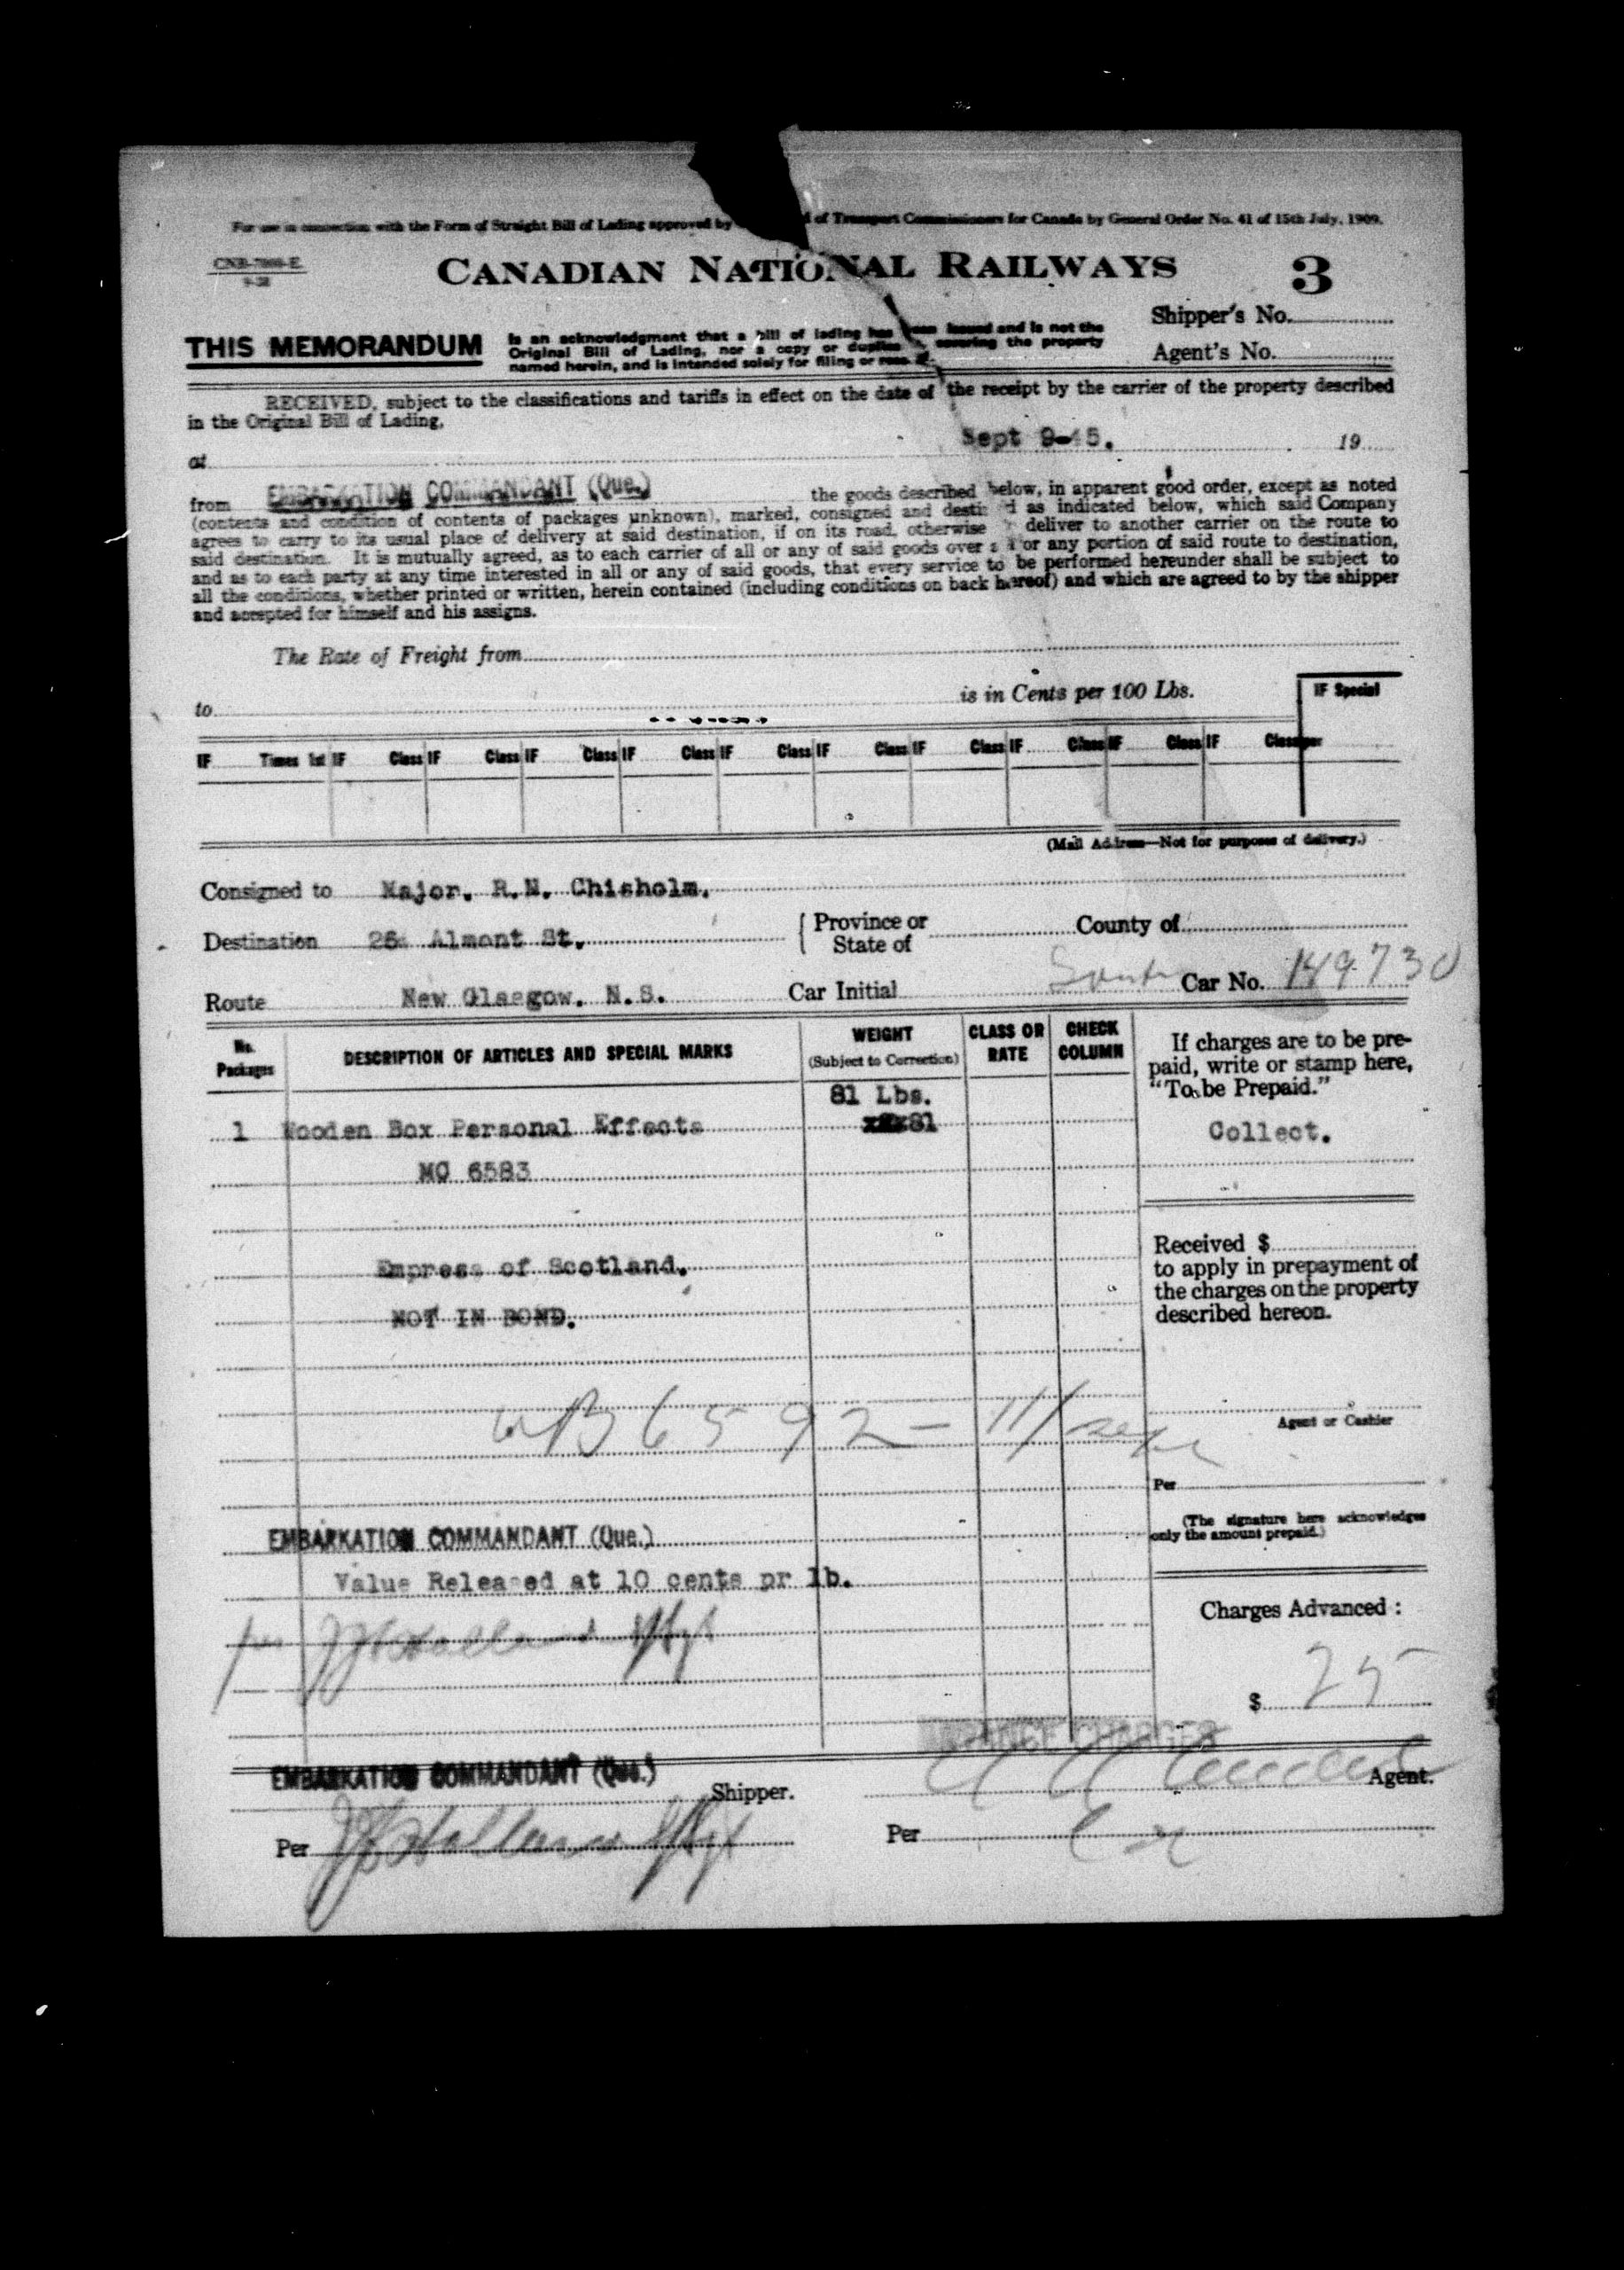 For use in connection with the Form of Straight Bill of Lading approved by of Transport Commissioners for Canada by General Order No. 41 of 15th July, 1909.
CANADIAN NATIONAL RAILWAYS 3
Shipper's No.
THIS MEMORANDUM
Is an acknowledgment that a bill of lading has been issued and is not the
Original Bill of Lading, nor a copy or covering the property
named herein, and is intended solely for filing or
Agent's No.
RECEIVED, subject to the classifications and tariffs in effect on the date of the receipt by the carrier of the property described
in the Original Bill of Lading,
Sept 9-45. 19
at
from EMBARKATION COMMANDANT (Que.) the goods described below, in apparent good order, except as noted
(contents and condition of contents of packages unknown), marked, consigned and desti d as indicated below, which said Company
agrees to carry to its usual place of delivery at said destination, if on its road, otherwise deliver to another carrier on the route to
said destination. It is mutually agreed, as to each carrier of all or any of said goods over or any portion of said route to destination,
and as to each party at any time interested in all or any of said goods, that every service to be performed hereunder shall be subject to
all the conditions, whether printed or written, herein contained (including conditions on back hereof) and which are agreed to by the shipper
and accepted for himself and his assigns.
The Rate of Freight from
to is in Cents per 100 Lbs.
IF Special
IF Times 1st IF Class IF Class IF Class IF Class IF Class IF Class IF Class IF Class IF Class IF Class per
(Mail Address—Not for purposes of delivery.)
Consigned to Major. R.N. Chisholm.
Destination Almont St. Province or State of County of
Route New Glasgow. N.S. Car Initial Car No. 149730
No. Packages DESCRIPTION OF ARTICLES AND SPECIAL MARKS WEIGHT (Subject to Correction) CLASS OR RATE CHECK COLUMN
If charges are to be pre-
paid, write or stamp here,
"To be Prepaid."
81 Lbs.
1 Wooden Box Personal Effects 81
Collect.
MC 6583
Received $
to apply in prepayment of
the charges on the property
described hereon.
Empress of Scotland.
NOT IN BOND.
WB 6592 - 11/sept
Agent or Cashier
Per
(The signature here acknowledges
only the amount prepaid.)
EMBARKATION COMMANDANT (Que.)
Value Released at 10 cents pr lb.
Charges Advanced:
per
$ 25
EMBARKATION COMMANDANT (Que.) Shipper.
Agent.
Per
Per